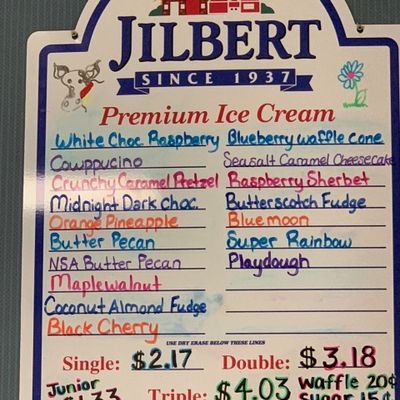 JILBERT
SINCE 1937
Premium Ice Cream
White Choc. Raspberry
Cowppucino
Crunchy Caramel Pretzel
Midnight Dark Choc.
Orange Pineapple
Butter Pecan
NSA Butter Pecan
Maplewalnut
Coconut Almond Fudge
Black Cherry
Blueberry waffle cone
Seasalt Caramel Cheesecake
Raspberry Sherbet
Butterscotch Fudge
Bluemoon
Super Rainbow
Playdough
USE DRY ERASE BELOW THESE LINES
Single: $2.17
Double: $3.18
Junior
Triple: $4.03
Waffle 20¢
Sugar 15¢